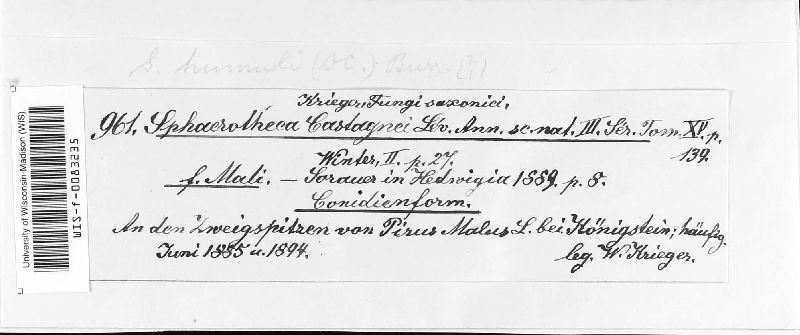 S. humuli (DC.) Burr.
Krieger, Fungi saxonici.
961. Sphaerotheca Castagnei Lév. Ann. sc. nat. III. Sér. Tom. XV. p. 139.
Winter, II. p. 27.
f. Mali. — Sorauer in Hedwigia 1889. p. 8.
Conidienform.
An den Zweigspitzen von Pirus Malus L. bei Königstein; häufig.
Juni 1885 u. 1894. leg. W. Krieger.
University of Wisconsin-Madison (WIS)
WIS-f-0083235